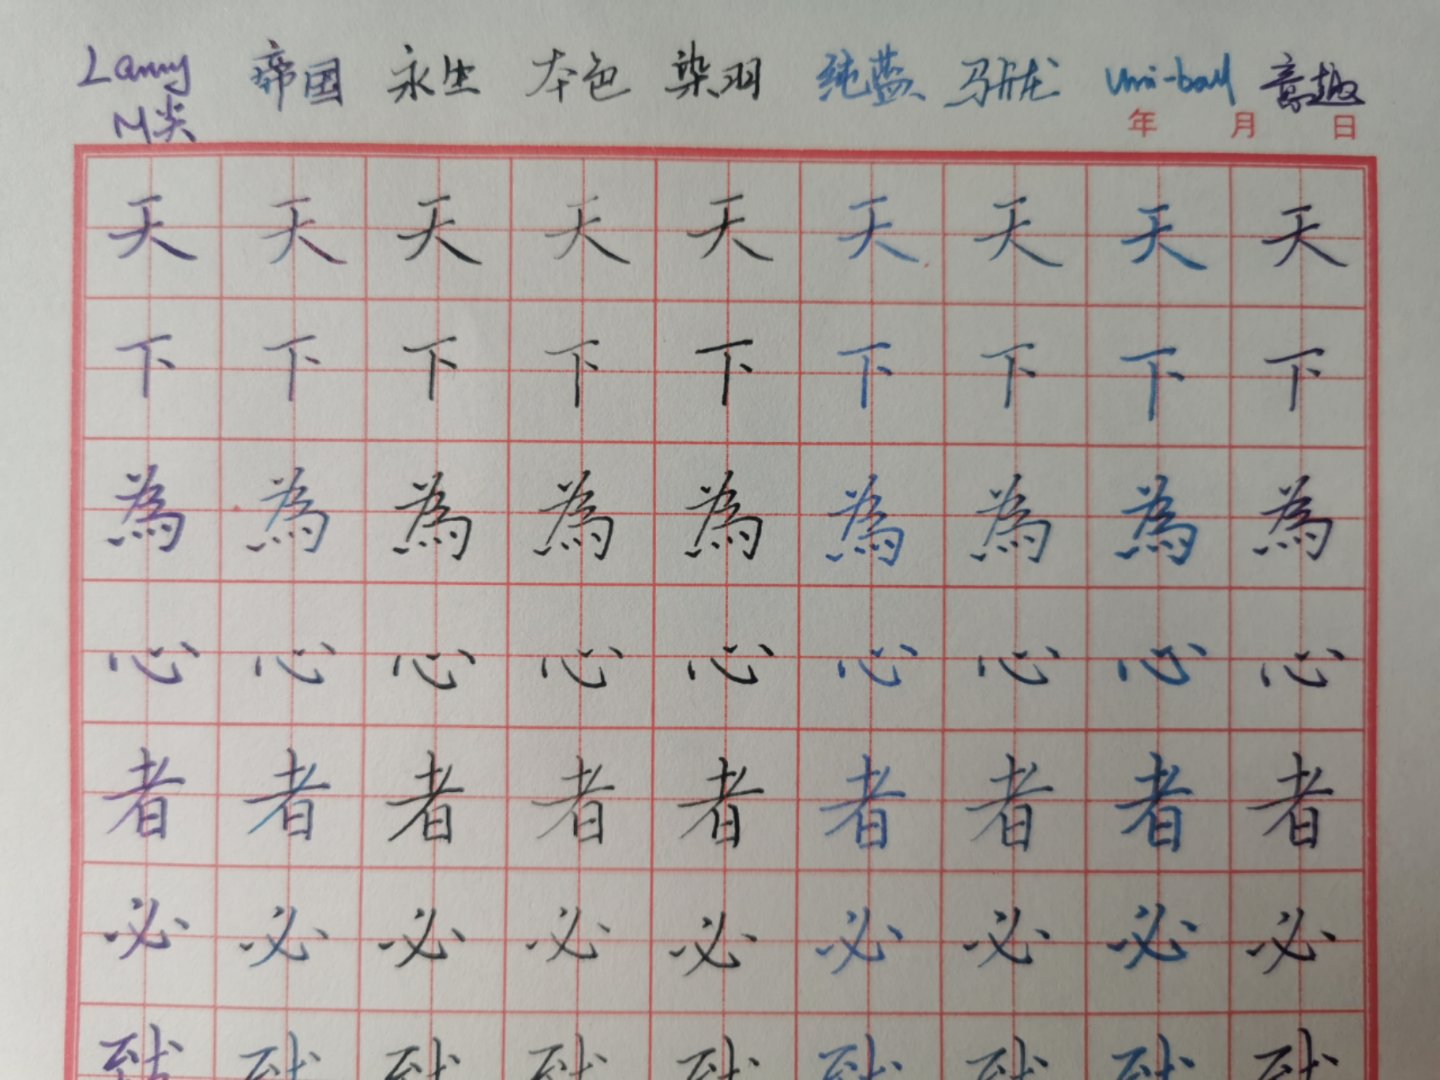 Lamy 帝国 永生 本色 染羽 纯蓝 马可龙 uni-ball 意趣
M尖
年 月 日
天 天 天 天 天 天 天 天 天
下 下 下 下 下 下 下 下 下
為 為 為 為 為 為 為 為 為
心 心 心 心 心 心 心 心 心
者 者 者 者 者 者 者 者 者
必 必 必 必 必 必 必 必 必